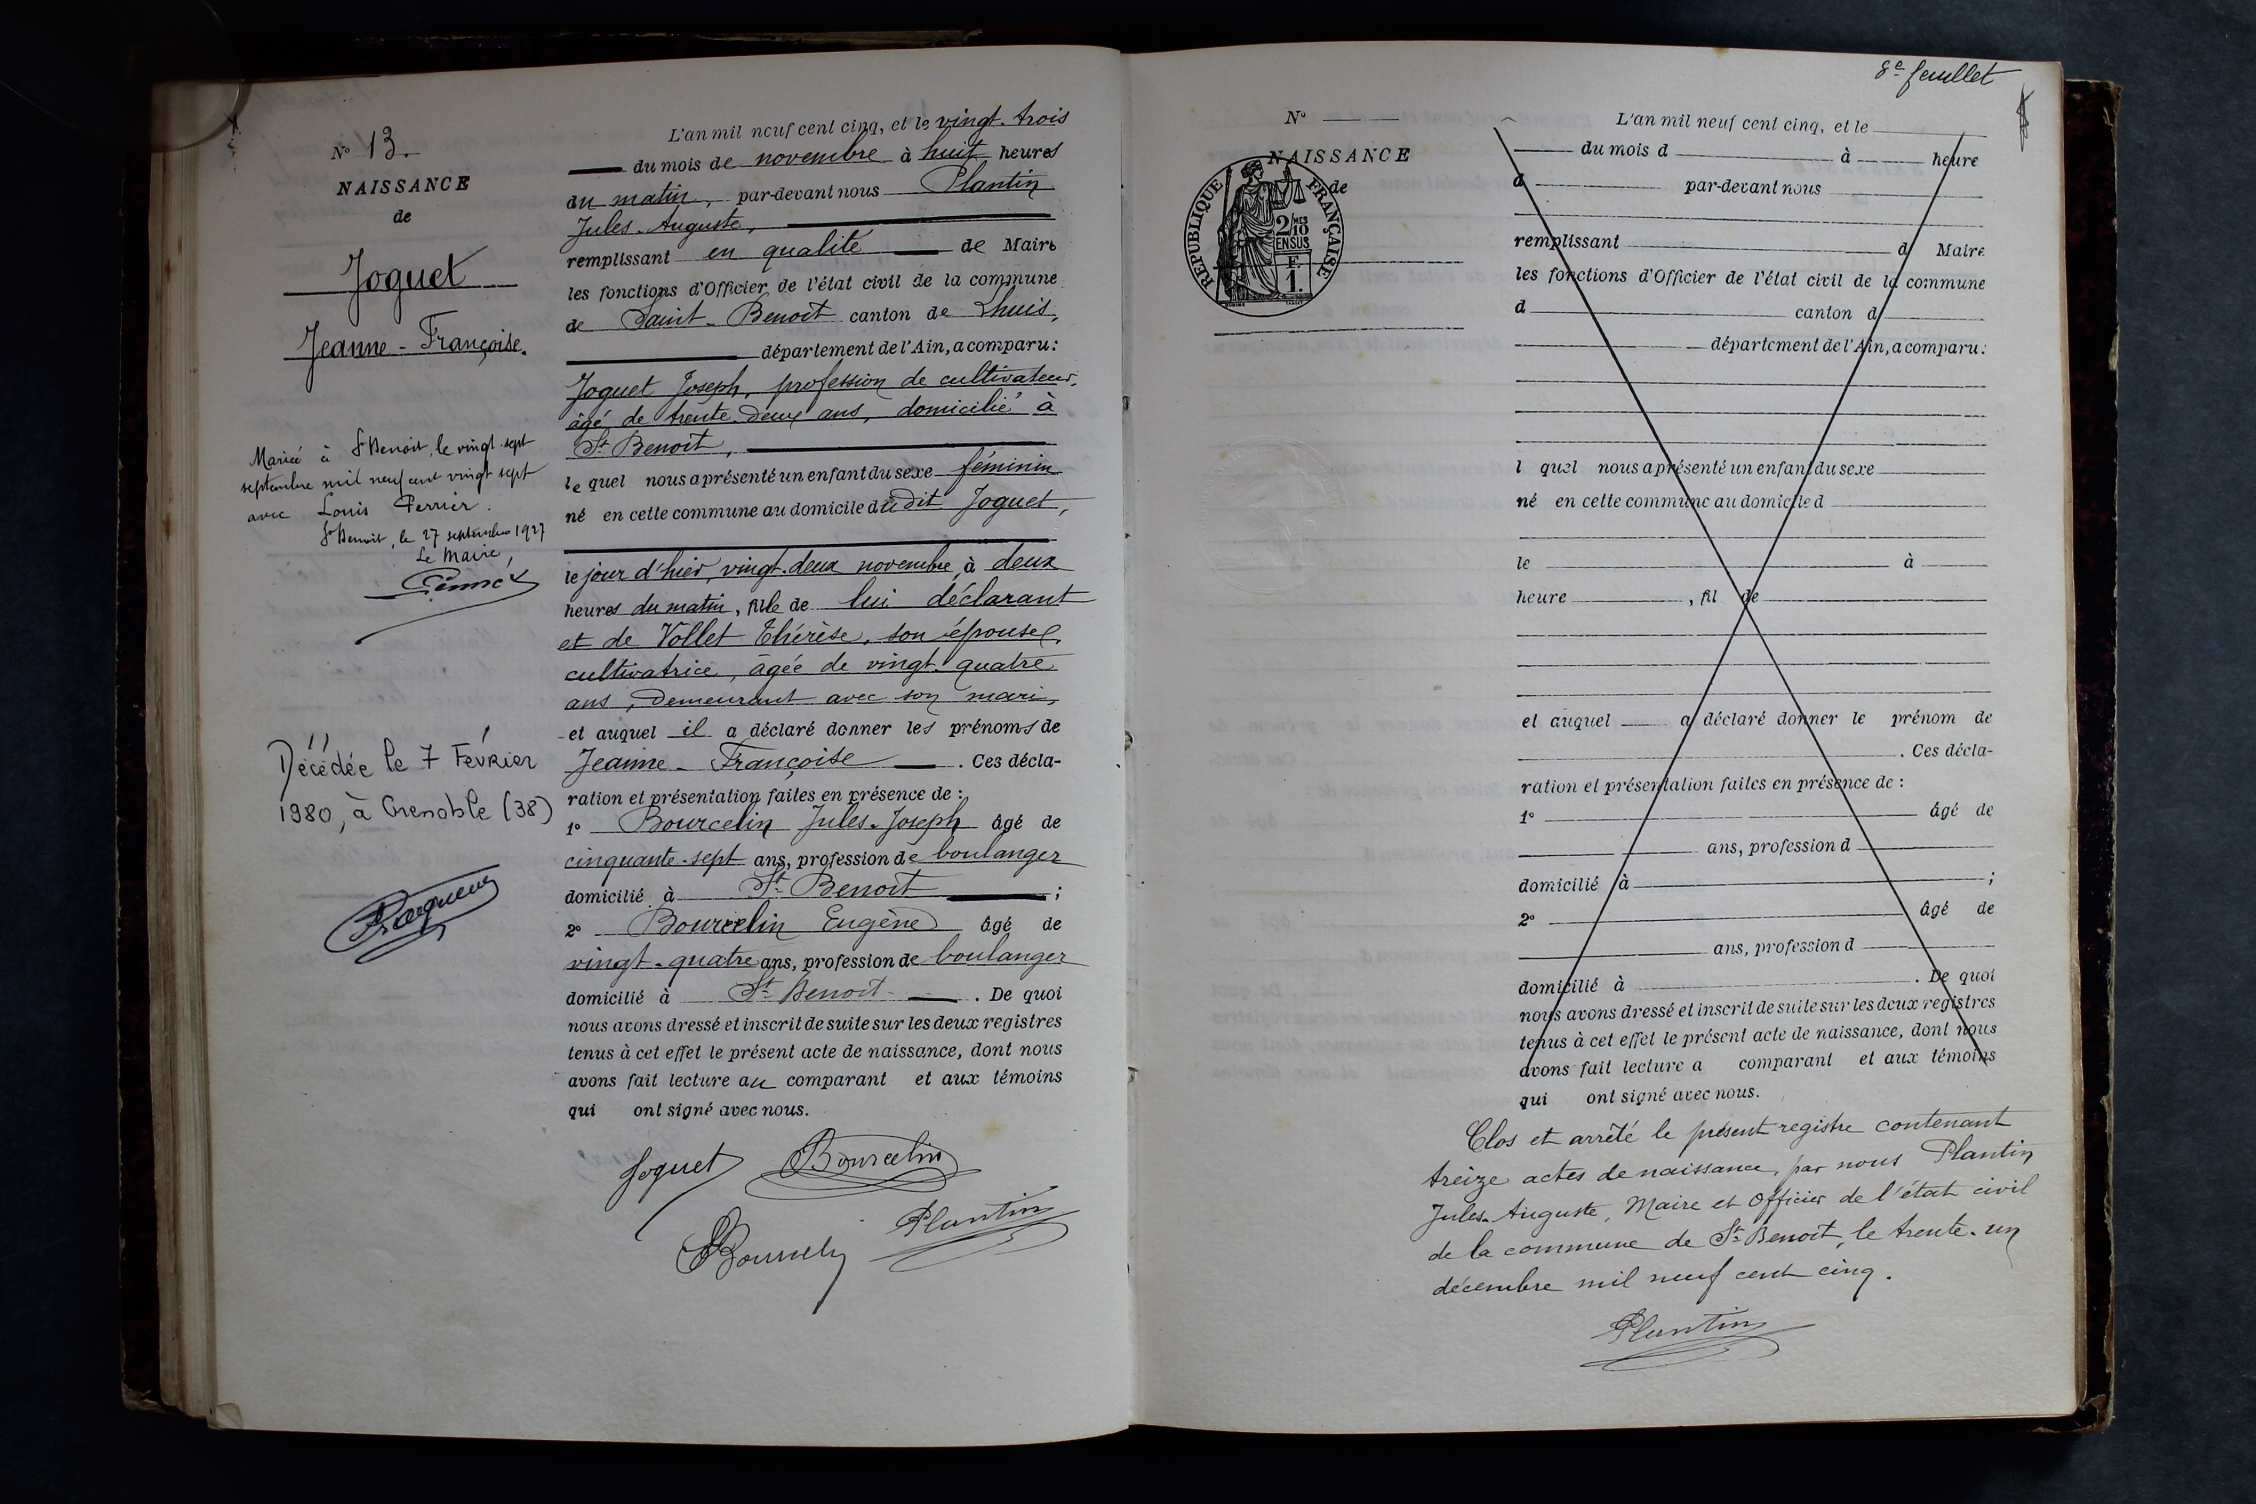 N° 13.
NAISSANCE
de
Joguet
Jeanne - Françoise.
Mariée à St Benoit, le vingt-sept
septembre mil neuf cent vingt sept
avec Louis Perrier.
St Benoit, le 27 septembre 1927
Le Maire,
Décédée le 7 Février
1980, à Grenoble (38)
L'an mil neuf cent cinq, et le vingt-trois
du mois de novembre à huit heures
du matin, par-devant nous Plantin
Jules-Auguste,
remplissant en qualité de Maire
les fonctions d'Officier de l'état civil de la commune
de Saint-Benoit canton de Lhuis,
département de l'Ain, a comparu:
Joguet Joseph, profession de cultivateur,
âgé de trente-deux ans, domicilié à
St Benoit,
le quel nous a présenté un enfant du sexe féminin
né en cette commune au domicile du dit Joguet,
le jour d'hier, vingt-deux novembre, à deux
heures du matin, fille de lui déclarant
et de Vollet Thérèse, son épouse,
cultivatrice, âgée de vingt-quatre
ans, demeurant avec son mari,
et auquel il a déclaré donner les prénoms de
Jeanne - Françoise. Ces décla-
ration et présentation faites en présence de:
1° Bourcelin Jules-Joseph âgé de
cinquante-sept ans, profession de boulanger
domicilié à St Benoit ;
2° Bourcelin Eugène âgé de
vingt-quatre ans, profession de boulanger
domicilié à St Benoit. De quoi
nous avons dressé et inscrit de suite sur les deux registres
tenus à cet effet le présent acte de naissance, dont nous
avons fait lecture au comparant et aux témoins
qui ont signé avec nous.
Joguet Bourcelin
Plantin
8e feuillet
N°
NAISSANCE
de
RÉPUBLIQUE FRANÇAISE
2/10 MES
EN SUS
F.
1.
L'an mil neuf cent cinq, et le
du mois d à heure
d par-devant nous
remplissant d Maire
les fonctions d'Officier de l'état civil de la commune
d canton d
département de l'Ain, a comparu:
l quel nous a présenté un enfant du sexe
né en cette commune au domicile d
le à
heure , fil de
et auquel a déclaré donner le prénom de
. Ces décla-
ration et présentation faites en présence de :
1° âgé de
ans, profession d
domicilié à ;
2° âgé de
ans, profession d
domicilié à . De quoi
nous avons dressé et inscrit de suite sur les deux registres
tenus à cet effet le présent acte de naissance, dont nous
avons fait lecture a comparant et aux témoins
qui ont signé avec nous.
Clos et arrêté le présent registre contenant
treize actes de naissance, par nous Plantin
Jules-Auguste, Maire et Officier de l'état civil
de la commune de St Benoit, le trente-un
décembre mil neuf cent cinq.
Plantin